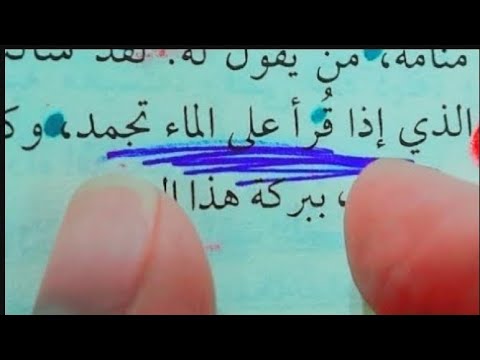 منامه، من يقول له: لقد
الذي إذا قُرأ على الماء تجمد، وك
، ببركة هذا ال